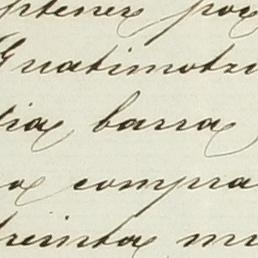 ptener por
Guatimotzi
tia barra
a compra
treinta mi